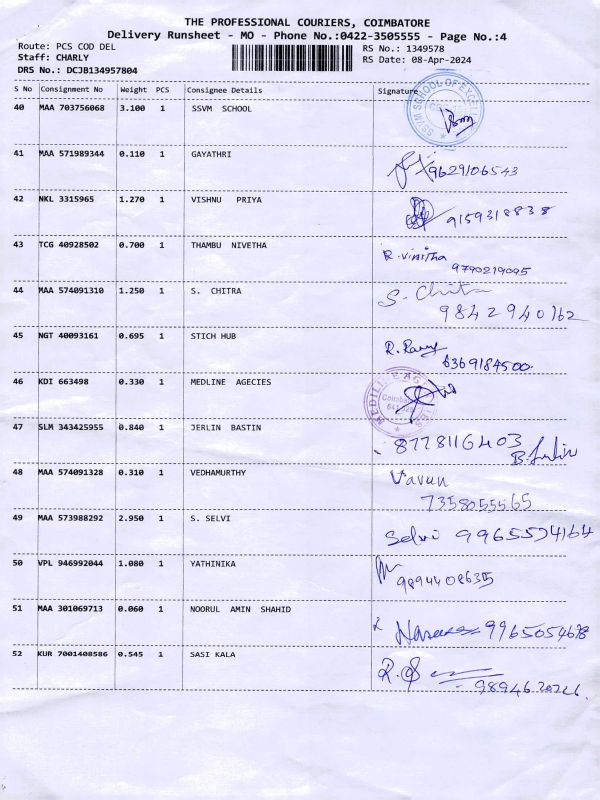 THE PROFESSIONAL COURIERS, COIMBATORE
Delivery Runsheet - MO - Phone No.:0422-3505555 - Page No.:4
Route: PCS COD DEL RS No.: 1349578
Staff: CHARLY RS Date: 08-Apr-2024
DRS No.: DCJB134957804
S No Consignment No Weight PCS Consignee Details Signature
40 MAA 703756068 3.100 1 SSVM SCHOOL
41 MAA 571989344 0.110 1 GAYATHRI
9629106543
42 NKL 3315965 1.270 1 VISHNU PRIYA
9159318838
43 TCG 40928502 0.700 1 THAMBU NIVETHA
R. vinitha
9790219095
44 MAA 574091310 1.250 1 S. CHITRA S. Chitra
9842940162
45 NGT 40093161 0.695 1 STICH HUB
6369184500
46 KDI 663498 0.330 1 MEDLINE AGECIES
47 SLM 343425955 0.840 1 JERLIN BASTIN
8778116403
B. Jerlin
48 MAA 574091328 0.310 1 VEDHAMURTHY
7358055565
49 MAA 573988292 2.950 1 S. SELVI
Selvi 9965574164
50 VPL 946992044 1.080 1 YATHINIKA
51 MAA 301069713 0.060 1 NOORUL AMIN SHAHID
9965054678
52 KUR 7001408586 0.545 1 SASI KALA